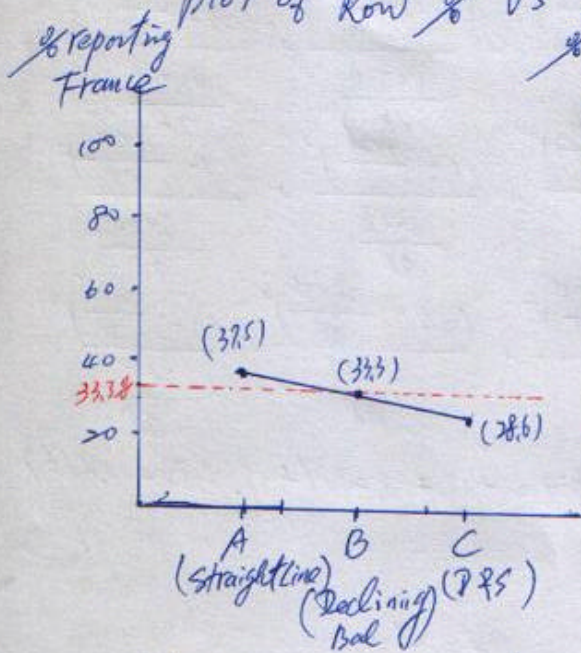 Plot of Row % Vs
% reporting
France
%
100
80
60
40
33.3%
20
(37.5)
(33.3)
(28.6)
A
B
C
(Straight Line)
(Declining
Bal